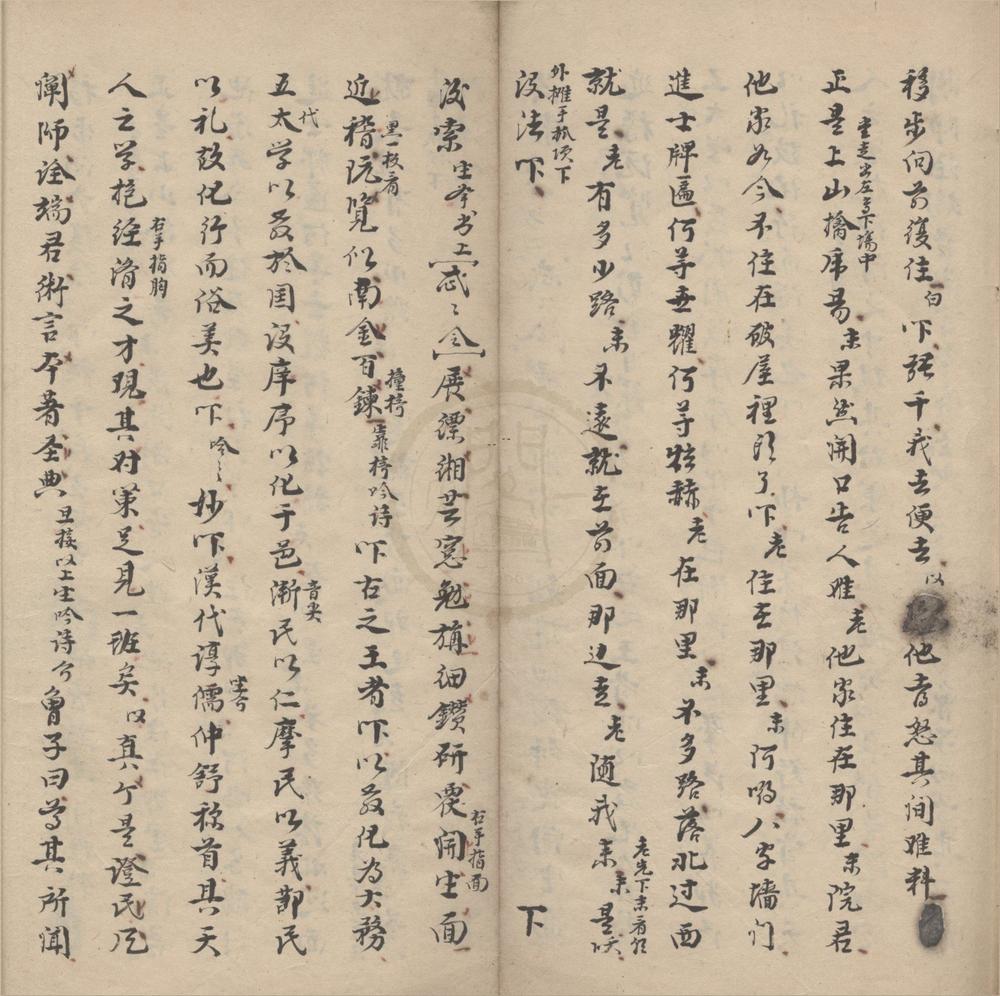 移步向前復往白吓張千我去便去以他青怒其間难料
老走出左占下場中
正是上山擒虎易末果然開口告人难老他家住在那里末院君
他家如今不住在破屋裡了吓老住在那里末阿喲八字墻门
進士牌匾何等荣耀何等炫赫老在那里末不多路落北过西
就是老有多少路末不遠就在前面那边去老随我来末是吷
老先下末看介
外攤手於项下
没法下
下
没索生本书上武〻令展缥湘芸窓勉旃細鑽研要開生面
右手指面
近稽阮覽似南金百鍊靠椅吟诗吓古之王者吓以教化為大務
黑一板看
撞椅
五太学以教於国设庠序以化于邑漸民以仁摩民以義節民
代
音尖
以礼故化行而俗美也下吟〻妙吓漢代諄儒仲舒称首其天
生介
人之学抱经濟之才現其对策足見一班矣以真个是證民冺
右手指胸
闡師诠端君術言本著圣典旦接以上生吟诗介曾子曰尊其所聞